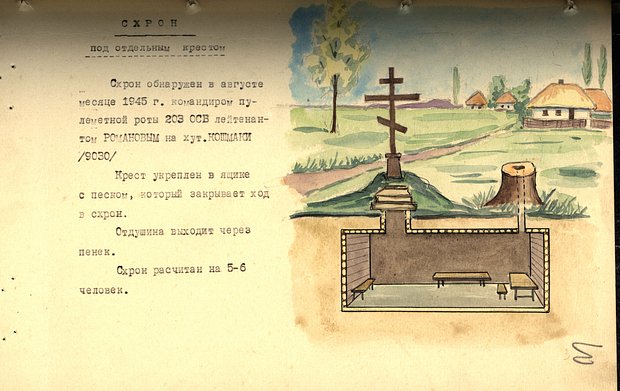 СХРОН
под отдельным крестом
Схрон обнаружен в августе
месяце 1945 г. командиром пу-
леметной роты 203 ОСБ лейтенан-
том РОМАНОВЫМ на хут.КОШМАКИ
/9030/
Крест укреплен в ящике
с песком, который закрывает ход
в схрон.
Отдушина выходит через
пенек.
Схрон расчитан на 5-6
человек.